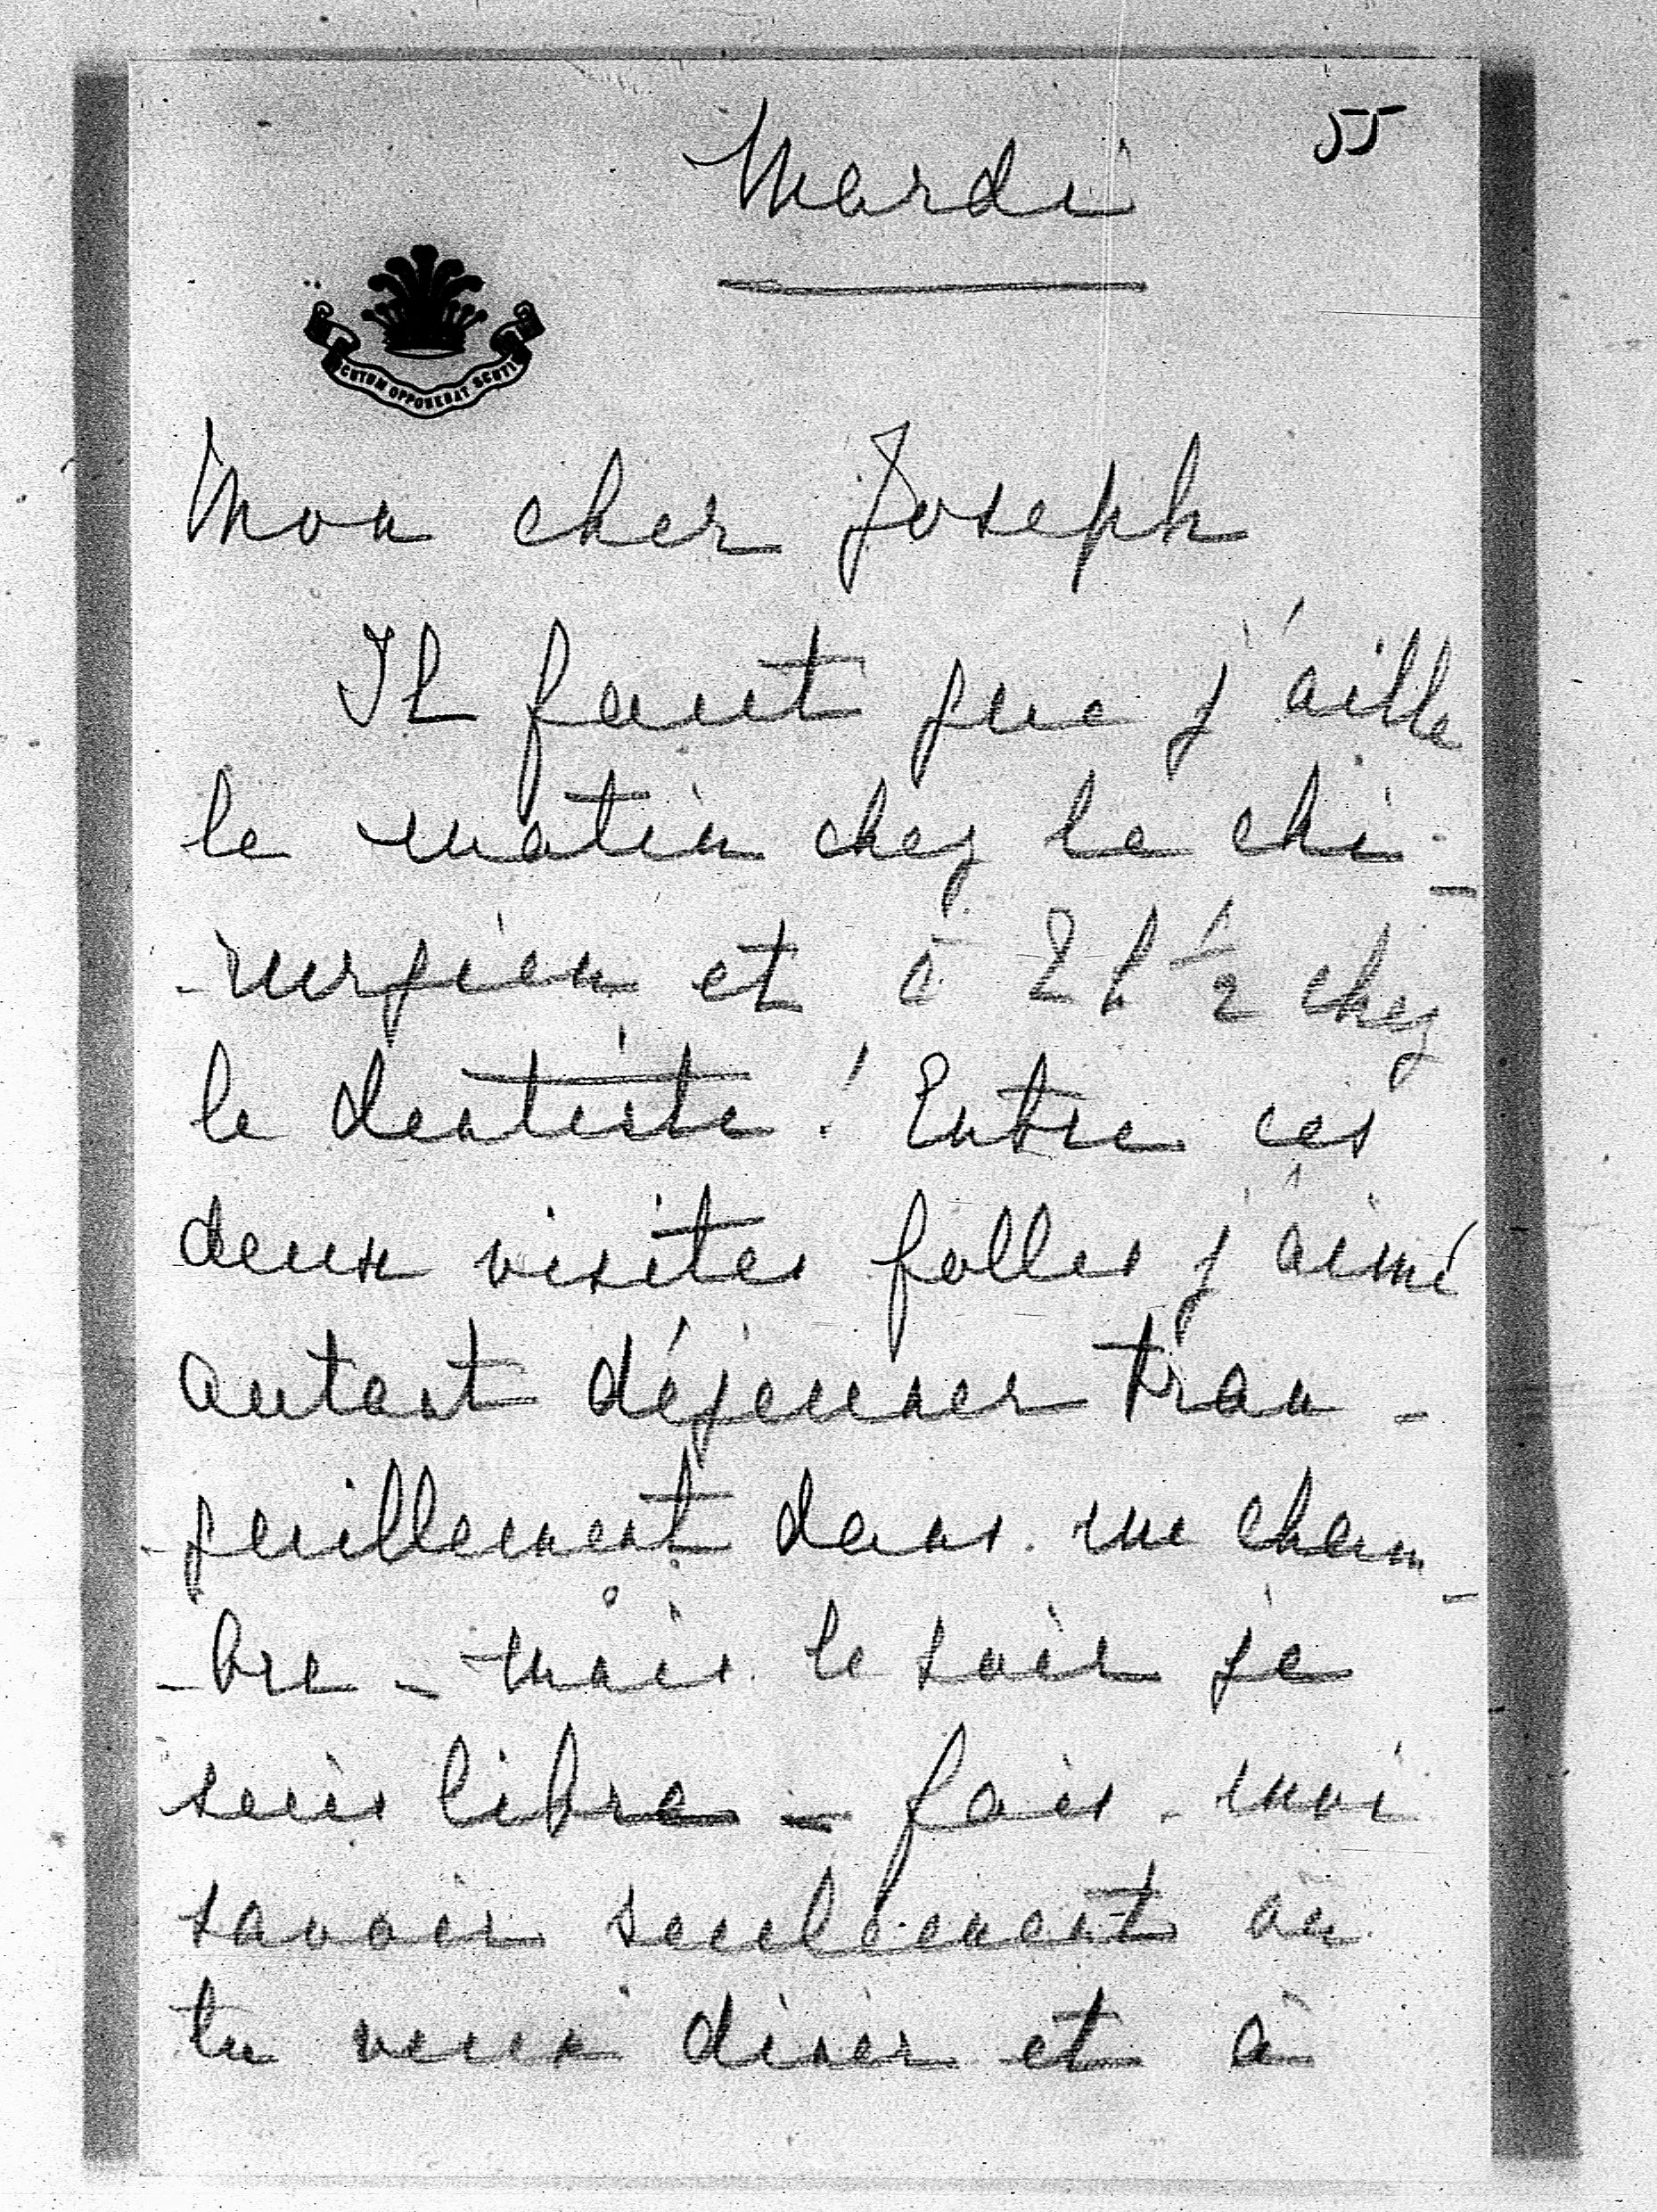 55
Mardi
SCUTUM OPPONEBAT SCUTIS
Mon cher Joseph
Il faut que j'aille
le matin chez le chi-
-rurgien et à 2 h 1/2 chez
le dentiste! Entre ces
deux visites folles j'aime
autant déjeuner tran-
-quillement dans ma cham-
-bre - mais le soir je
suis libre - fais-moi
savoir seulement où
tu veux diner et à